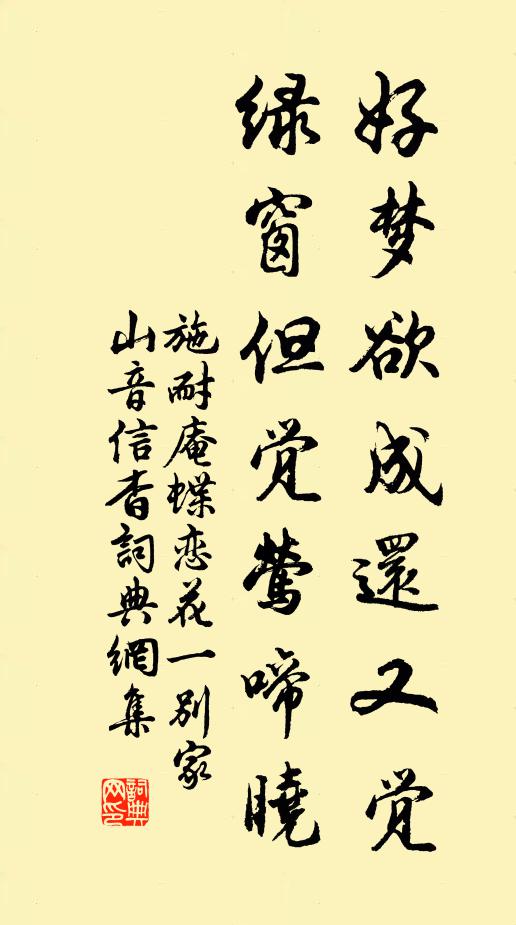 好梦欲成還又觉
绿窗但觉莺啼曉
施耐庵蝶恋花一别家
山音信杳詞典網集
詞典网印